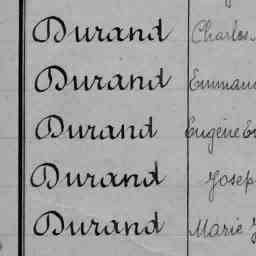 Durand Charles
Durand
Durand Eugène
Durand
Durand Marie